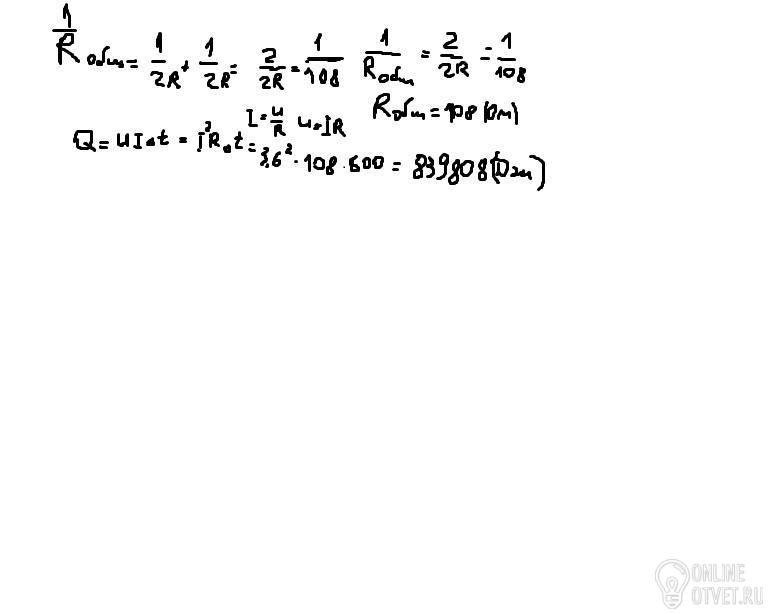 1/Rобщ = 1/2R + 1/2R = 2/2R = 1/108 1/Rобщ = 2/2R = 1/108
Rобщ = 108 (Ом)
I = u/R u = IR
Q = UI△t = I²R△t = 3,6² · 108 · 600 = 839808 (Дж)
ONLINE
OTVET.RU